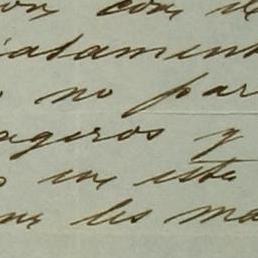 con de
iatament
no par
ageros y
en este
les ma